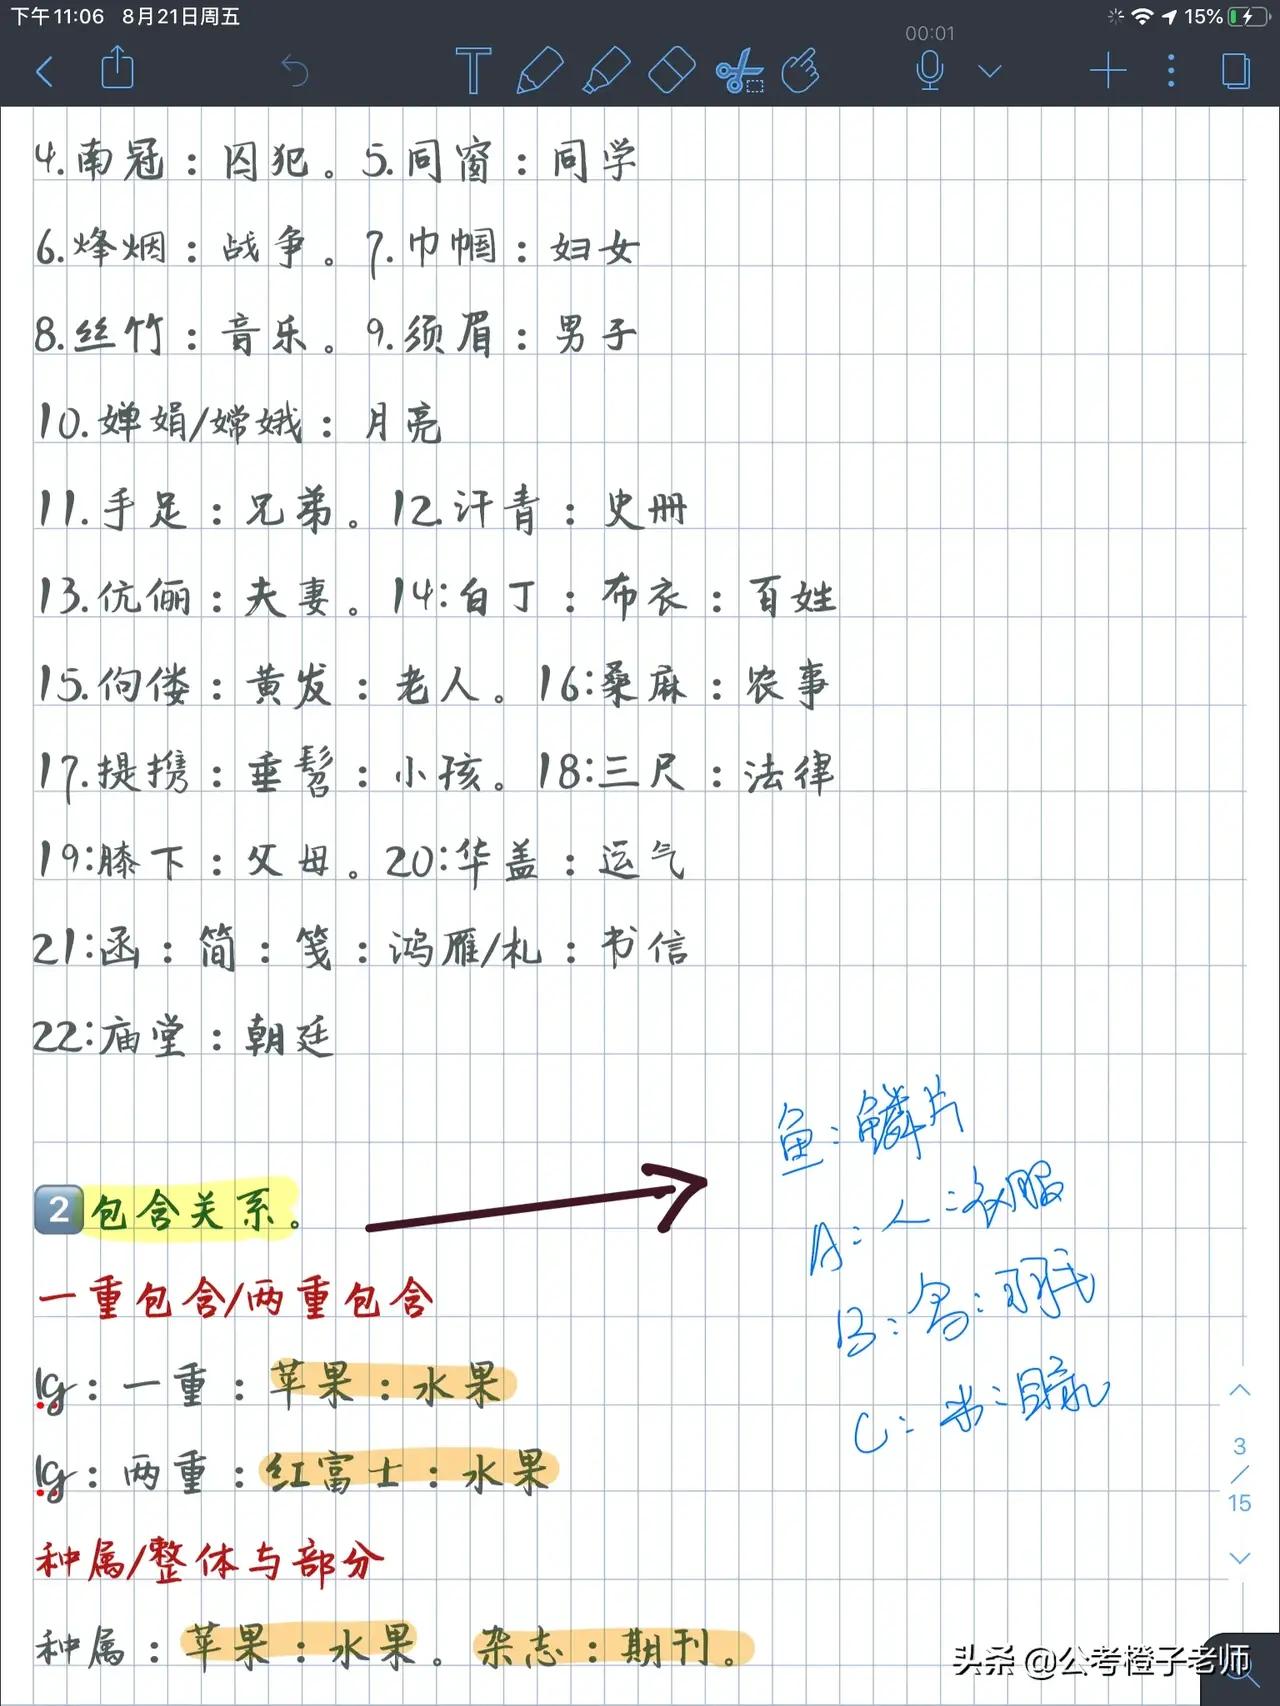 下午11:06 8月21日周五
15%
00:01
4.南冠：囚犯。5.同窗：同学
6.烽烟：战争。7.巾帼：妇女
8.丝竹：音乐。9.须眉：男子
10.婵娟/嫦娥：月亮
11.手足：兄弟。12.汗青：史册
13.伉俪：夫妻。14:白丁：布衣：百姓
15.佝偻：黄发：老人。16:桑麻：农事
17.提携：垂髫：小孩。18:三尺：法律
19:膝下：父母。20:华盖：运气
21:函：简：笺：鸿雁/札：书信
22:庙堂：朝廷
鱼：鳞片
2 包含关系。
A：人：衣服
一重包含/两重包含
B：鸟：羽毛
eg：一重：苹果：水果
C：
3/15
eg：两重：红富士：水果
种属/整体与部分
种属：苹果：水果。杂志：期刊。
头条 @公考橙子老师